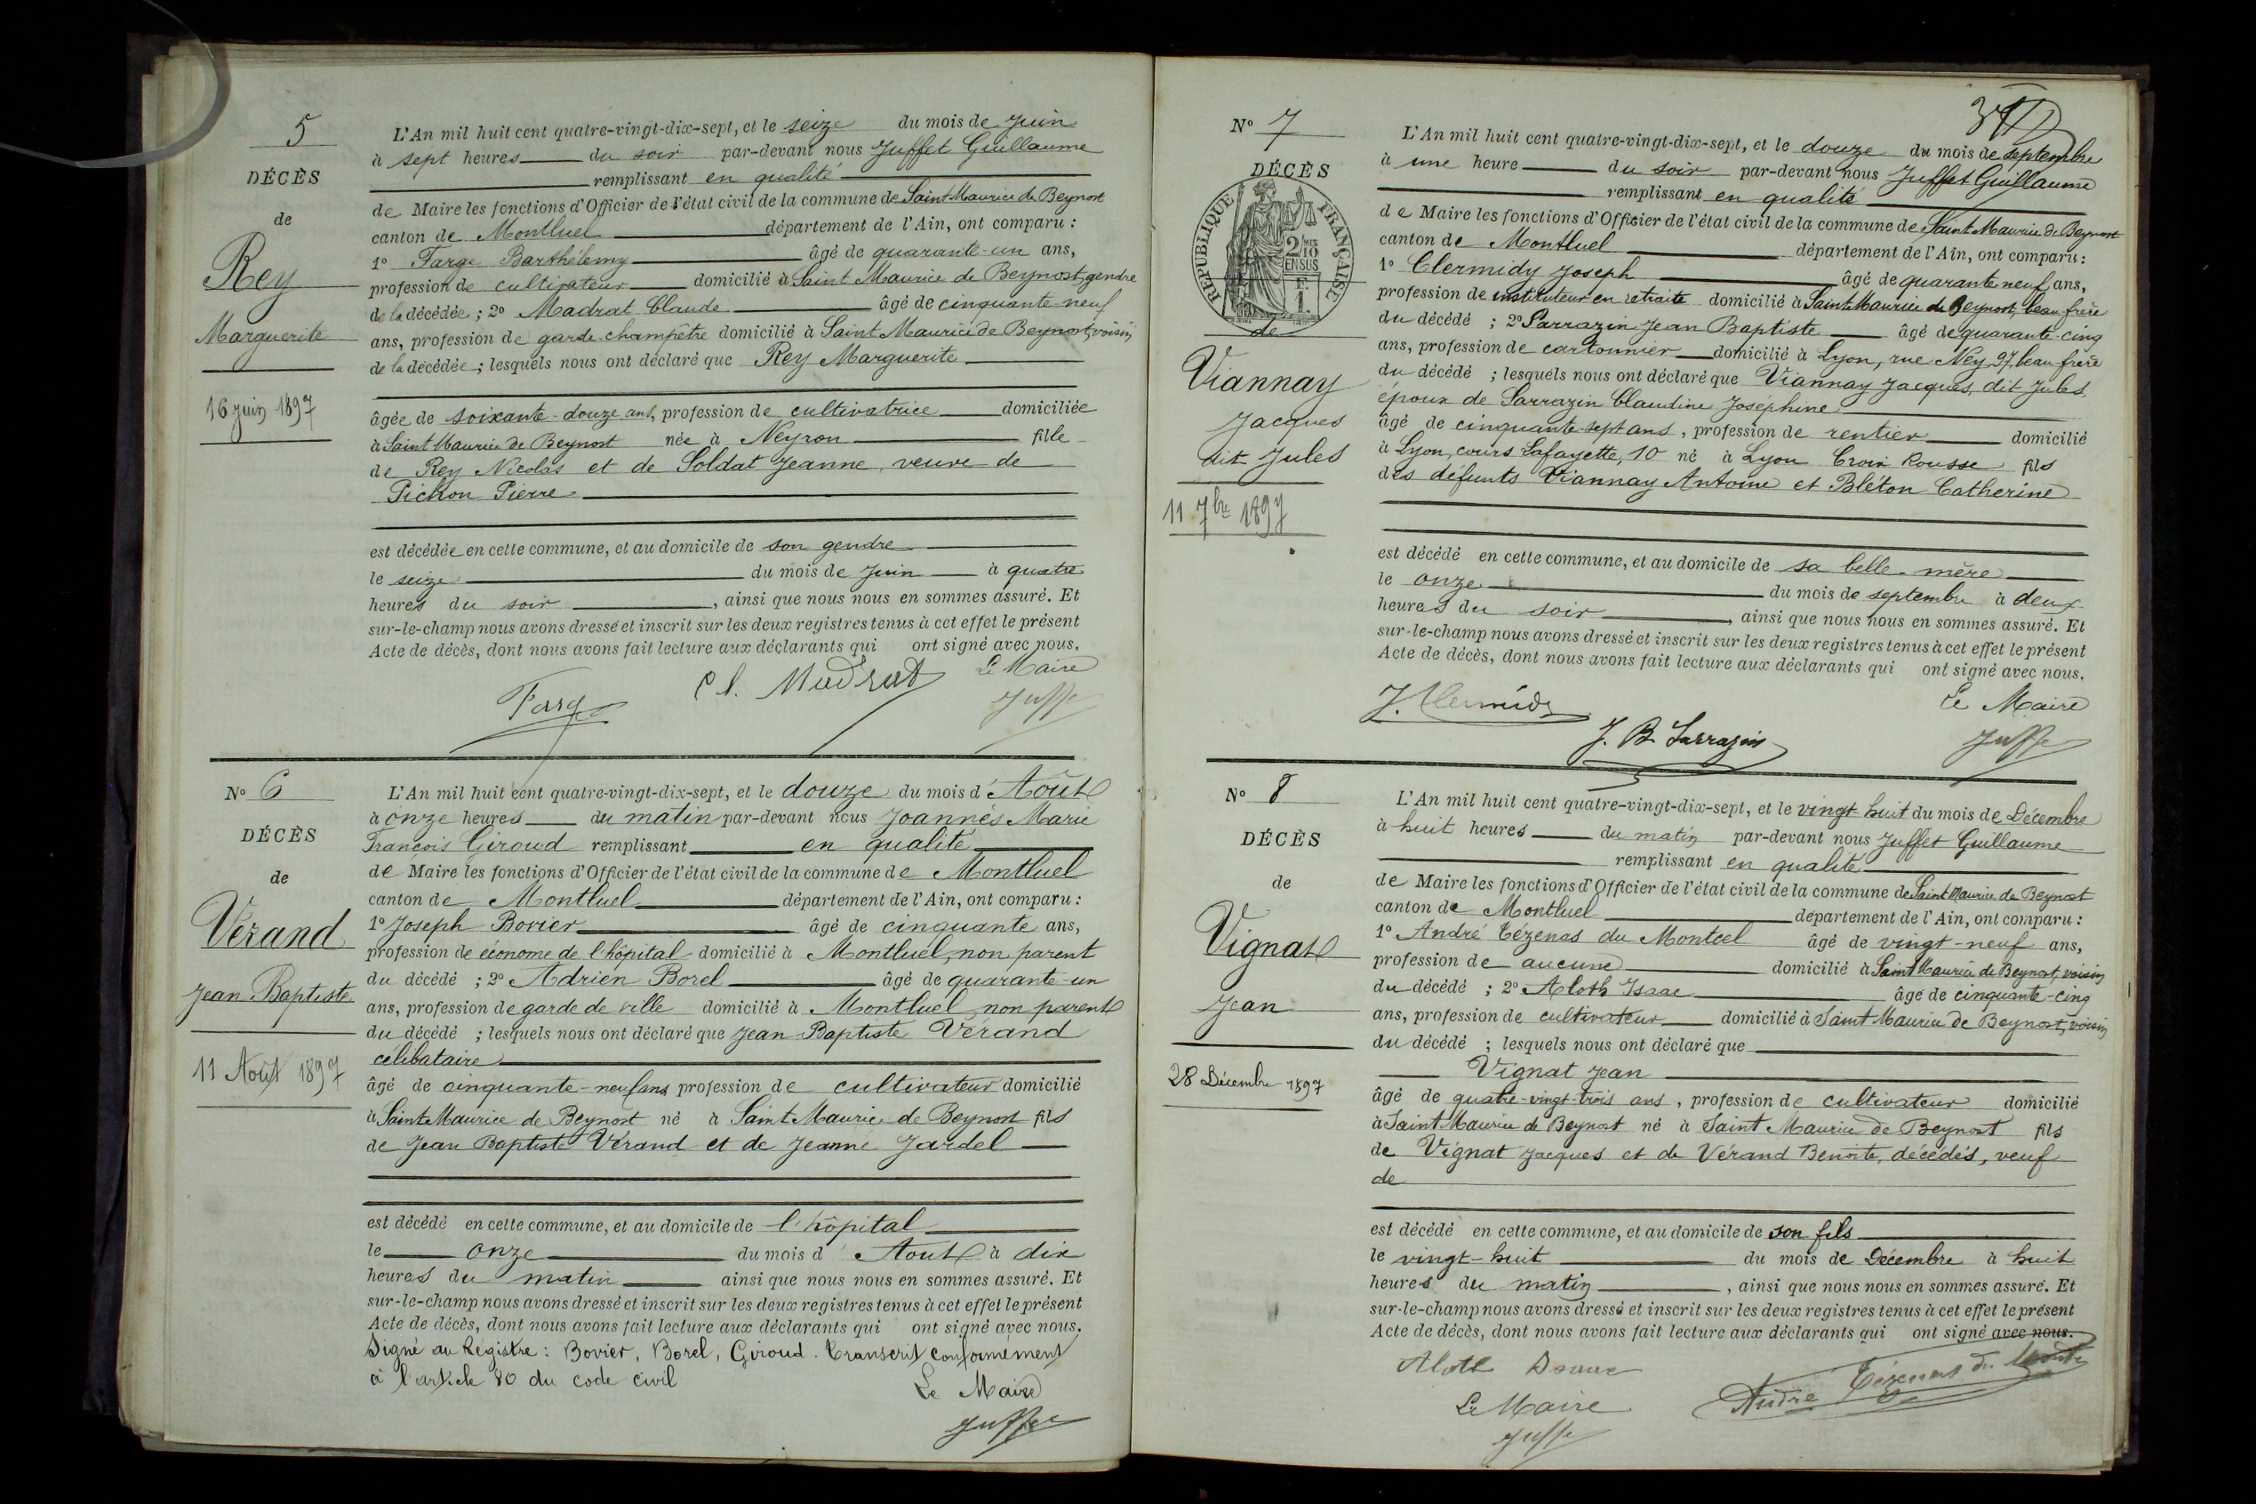 5
DÉCÈS
de
Rey
Marguerite
16 juin 1897
L'An mil huit cent quatre-vingt-dix-sept, et le seize du mois de Juin
à sept heures du soir par-devant nous Juffet Guillaume
remplissant en qualité
de Maire les fonctions d'Officier de l'état civil de la commune de Saint Maurice de Beynost
canton de Montluel département de l'Ain, ont comparu :
1° Farge Barthélemy âgé de quarante-un ans,
profession de cultivateur domicilié à Saint Maurice de Beynost, gendre
de la décédée ; 2° Madrat Claude âgé de cinquante-neuf
ans, profession de garde champêtre domicilié à Saint Maurice de Beynost, voisin
de la décédée ; lesquels nous ont déclaré que Rey Marguerite
âgée de soixante-douze ans, profession de cultivatrice domiciliée
à Saint Maurice de Beynost née à Neyron fille
de Rey Nicolas et de Soldat Jeanne, veuve de
Pichon Pierre
est décédée en cette commune, et au domicile de son gendre
le seize du mois de Juin à quatre
heures du soir, ainsi que nous nous en sommes assuré. Et
sur-le-champ nous avons dressé et inscrit sur les deux registres tenus à cet effet le présent
Acte de décès, dont nous avons fait lecture aux déclarants qui ont signé avec nous.
Farge Cl. Madrat Le Maire
Juffet
N° 6
DÉCÈS
de
Vérand
Jean Baptiste
11 Août 1897
L'An mil huit cent quatre-vingt-dix-sept, et le douze du mois d'Août
à onze heures du matin par-devant nous Joannès Marie
François Giroud remplissant en qualité
de Maire les fonctions d'Officier de l'état civil de la commune de Montluel
canton de Montluel département de l'Ain, ont comparu :
1° Joseph Bovier âgé de cinquante ans,
profession de économe de l'hôpital domicilié à Montluel, non parent
du décédé ; 2° Adrien Borel âgé de quarante-un
ans, profession de garde de ville domicilié à Montluel, non parent
du décédé ; lesquels nous ont déclaré que Jean Baptiste Vérand
célibataire
âgé de cinquante-neuf ans profession de cultivateur domicilié
à Saint Maurice de Beynost né à Saint Maurice de Beynost fils
de Jean Baptiste Vérand et de Jeanne Jardel
est décédé en cette commune, et au domicile de l'hôpital
le onze du mois d'Aout à dix
heures du matin ainsi que nous nous en sommes assuré. Et
sur-le-champ nous avons dressé et inscrit sur les deux registres tenus à cet effet le présent
Acte de décès, dont nous avons fait lecture aux déclarants qui ont signé avec nous.
Signé au Régistre : Bovier, Borel, Giroud. Transcrit conformément
à l'article 80 du code civil
Le Maire
Juffet
N° 7
DÉCÈS
RÉPUBLIQUE FRANÇAISE
2/10 EN SUS
F. 1.
de
Viannay
Jacques
dit Jules
11 7bre 1897
L'An mil huit cent quatre-vingt-dix-sept, et le douze du mois de septembre
à une heure du soir par-devant nous Juffet Guillaume
remplissant en qualité
de Maire les fonctions d'Officier de l'état civil de la commune de Saint Maurice de Beynost
canton de Montluel département de l'Ain, ont comparu :
1° Clermidy Joseph âgé de quarante neuf ans,
profession de instituteur en retraite domicilié à Saint Maurice de Beynost, beau-frère
du décédé ; 2° Sarrazin Jean Baptiste âgé de quarante-cinq
ans, profession de cartonnier domicilié à Lyon, rue Ney, 97, beau-frère
du décédé ; lesquels nous ont déclaré que Viannay Jacques, dit Jules,
époux de Sarrazin Claudine Joséphine
âgé de cinquante-sept ans, profession de rentier domicilié
à Lyon, cours Lafayette, 10 né à Lyon Croix Rousse fils
des défunts Viannay Antoine et Bléton Catherine
est décédé en cette commune, et au domicile de sa belle-mère
le onze du mois de septembre à deux
heures du soir, ainsi que nous nous en sommes assuré. Et
sur-le-champ nous avons dressé et inscrit sur les deux registres tenus à cet effet le présent
Acte de décès, dont nous avons fait lecture aux déclarants qui ont signé avec nous.
J. Clermidy Le Maire
J. B. Sarrazin Juffet
N° 8
DÉCÈS
de
Vignat
Jean
28 Décembre 1897
L'An mil huit cent quatre-vingt-dix-sept, et le vingt-huit du mois de Décembre
à huit heures du matin par-devant nous Juffet Guillaume
remplissant en qualité
de Maire les fonctions d'Officier de l'état civil de la commune de Saint Maurice de Beynost
canton de Montluel département de l'Ain, ont comparu :
1° André Tézenas du Montcel âgé de vingt-neuf ans,
profession de aucune domicilié à Saint Maurice de Beynost, voisin
du décédé ; 2° Aloth Isaac âgé de cinquante-cinq
ans, profession de cultivateur domicilié à Saint Maurice de Beynost, voisin
du décédé ; lesquels nous ont déclaré que
Vignat Jean
âgé de quatre-vingt-trois ans, profession de cultivateur domicilié
à Saint Maurice de Beynost né à Saint Maurice de Beynost fils
de Vignat Jacques et de Vérand Benoite, décédés, veuf
de
est décédé en cette commune, et au domicile de son fils
le vingt-huit du mois de Décembre à huit
heures du matin, ainsi que nous nous en sommes assuré. Et
sur-le-champ nous avons dressé et inscrit sur les deux registres tenus à cet effet le présent
Acte de décès, dont nous avons fait lecture aux déclarants qui ont signé avec nous.
Aloth Isaac André Tézenas du Montcel
Le Maire
Juffet